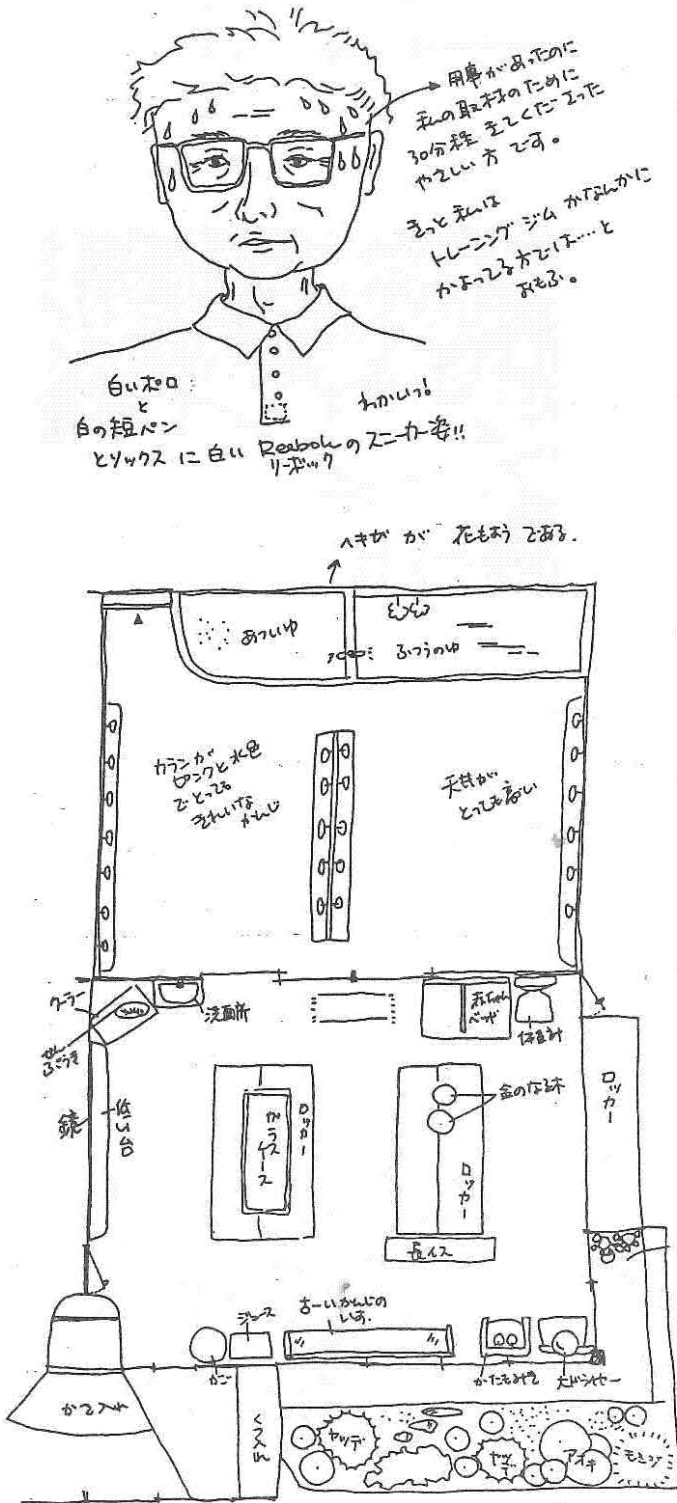 用事があったのに
私の取材のために
30分程
やさしい方です。
きっと私は
トレーニングジムかなんかに
かよってる方では…と
おもふ。
白いポロ
と
白の短パン
とソックスに白いReebokのスニーカー姿!!
リーボック
わかいっ!
ヘキガが花もようである.
あついゆ
ふつうのゆ
カランが
ピンクと水色
でとっても
きれいな
かんじ
天井が
とっても高い
クーラー
せんぷうき
洗面所
赤ちゃん
ベッド
体重計
鏡
低い台
ロッカー
ガラスケース
金のなる木
ロッカー
ロッカー
長イス
古ーいかんじの
いす.
ジュース
かご
かたもみき
大ドライヤー
かさ入れ
くつ入れ
ヤツデ
ヤツデ
アオキ
モミジ